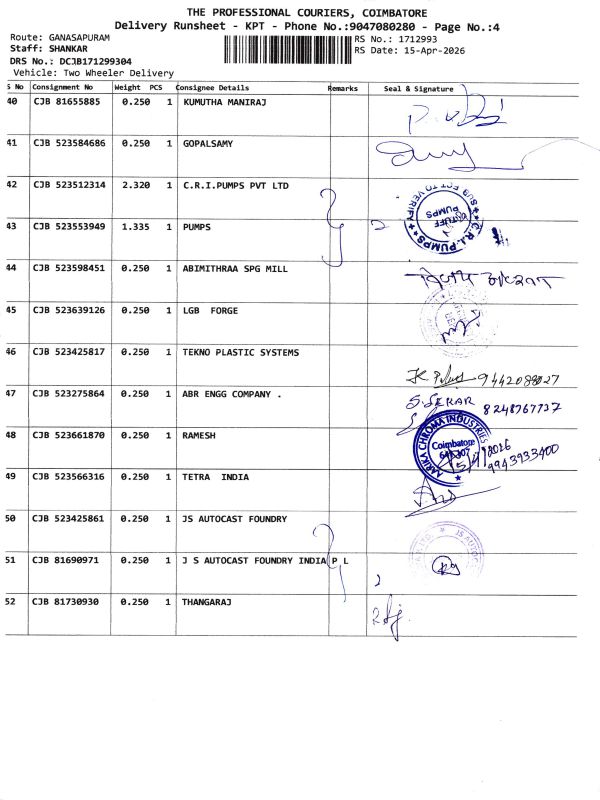 THE PROFESSIONAL COURIERS, COIMBATORE
Delivery Runsheet - KPT - Phone No.:9047080280 - Page No.:4
Route: GANASAPURAM
RS No.: 1712993
Staff: SHANKAR
RS Date: 15-Apr-2026
DRS No.: DCJB171299304
Vehicle: Two Wheeler Delivery
S No Consignment No Weight PCS Consignee Details Remarks Seal & Signature
40 CJB 81655885 0.250 1 KUMUTHA MANIRAJ
41 CJB 523584686 0.250 1 GOPALSAMY
42 CJB 523512314 2.320 1 C.R.I.PUMPS PVT LTD
SUB ECT TO VERIFY
PUMPS
C.R.I. PUMPS
43 CJB 523553949 1.335 1 PUMPS 2
44 CJB 523598451 0.250 1 ABIMITHRAA SPG MILL
45 CJB 523639126 0.250 1 LGB FORGE
46 CJB 523425817 0.250 1 TEKNO PLASTIC SYSTEMS
47 CJB 523275864 0.250 1 ABR ENGG COMPANY . S. SEKAR
8248767737
48 CJB 523661870 0.250 1 RAMESH
CHROMA INDUSTRIES
Coimbatore
9943933400
49 CJB 523566316 0.250 1 TETRA INDIA
50 CJB 523425861 0.250 1 JS AUTOCAST FOUNDRY
JS AUTOC
51 CJB 81690971 0.250 1 J S AUTOCAST FOUNDRY INDIA P L
52 CJB 81730930 0.250 1 THANGARAJ